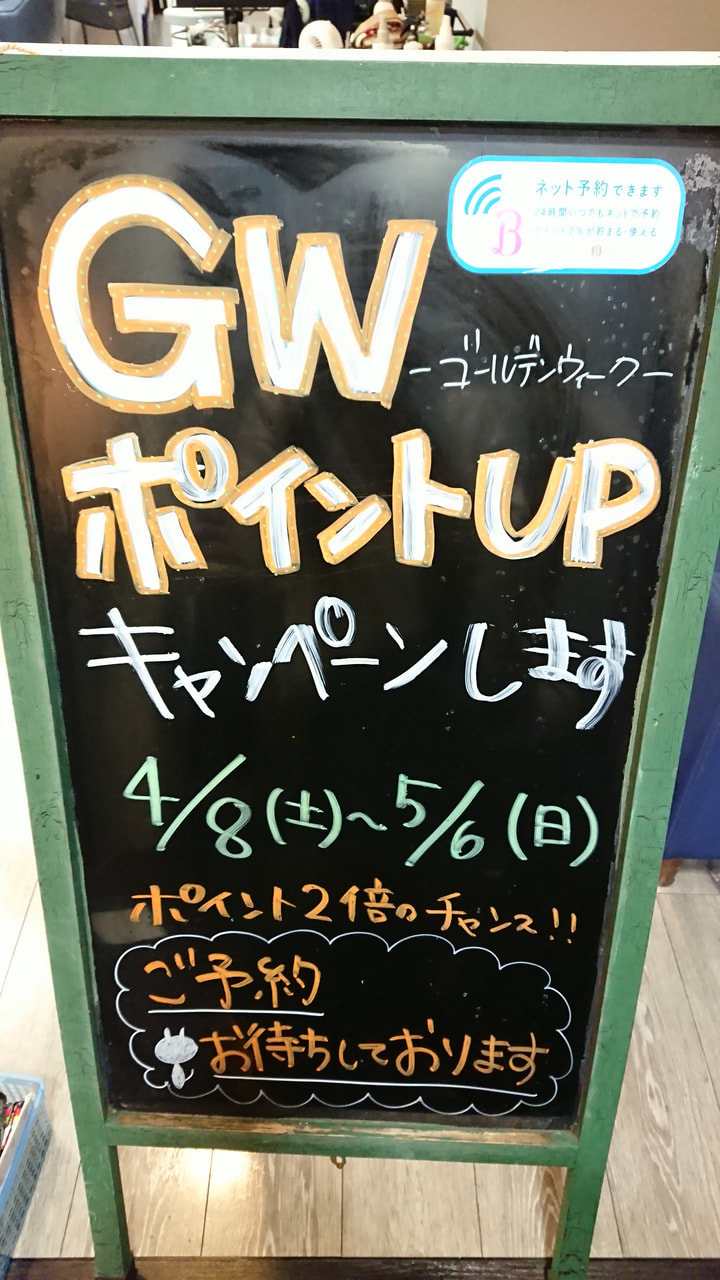 ネット予約できます
24時間いつでもネットで予約
ポイント2%が貯まる・使える
B
GW
ーゴールデンウィークー
ポイントUP
キャンペーンします
4/8(土)~5/6(日)
ポイント2倍のチャンス!!
ご予約
お待ちしております